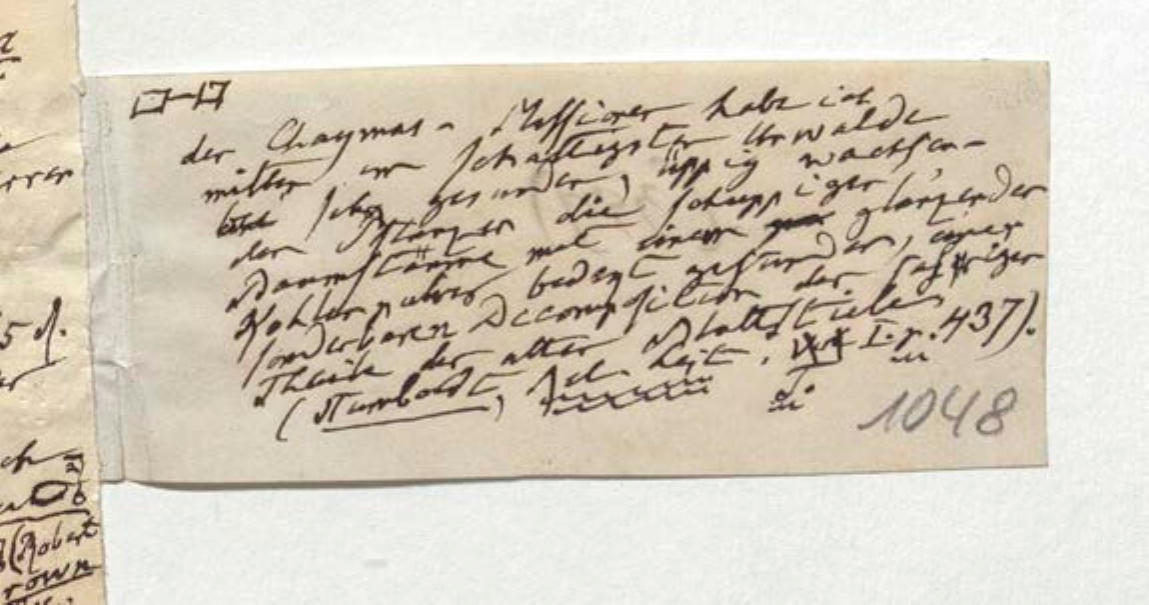 der Chaymas-Missionen habe ich
mitten im schattigsten Urwalde
sehr gesunder, üppig wachsen-
der Pflanzen die schuppiger
Baumstämme mit einem glänzender
Kohlenpulver bedekt gefunden, einer
sonderbaren Decomposition der fasriger
Theile der alten Blattstiele
(Humboldt, Rel. hist. T. I. p. 437).
1048
5 d.
ch
(Robert
rown